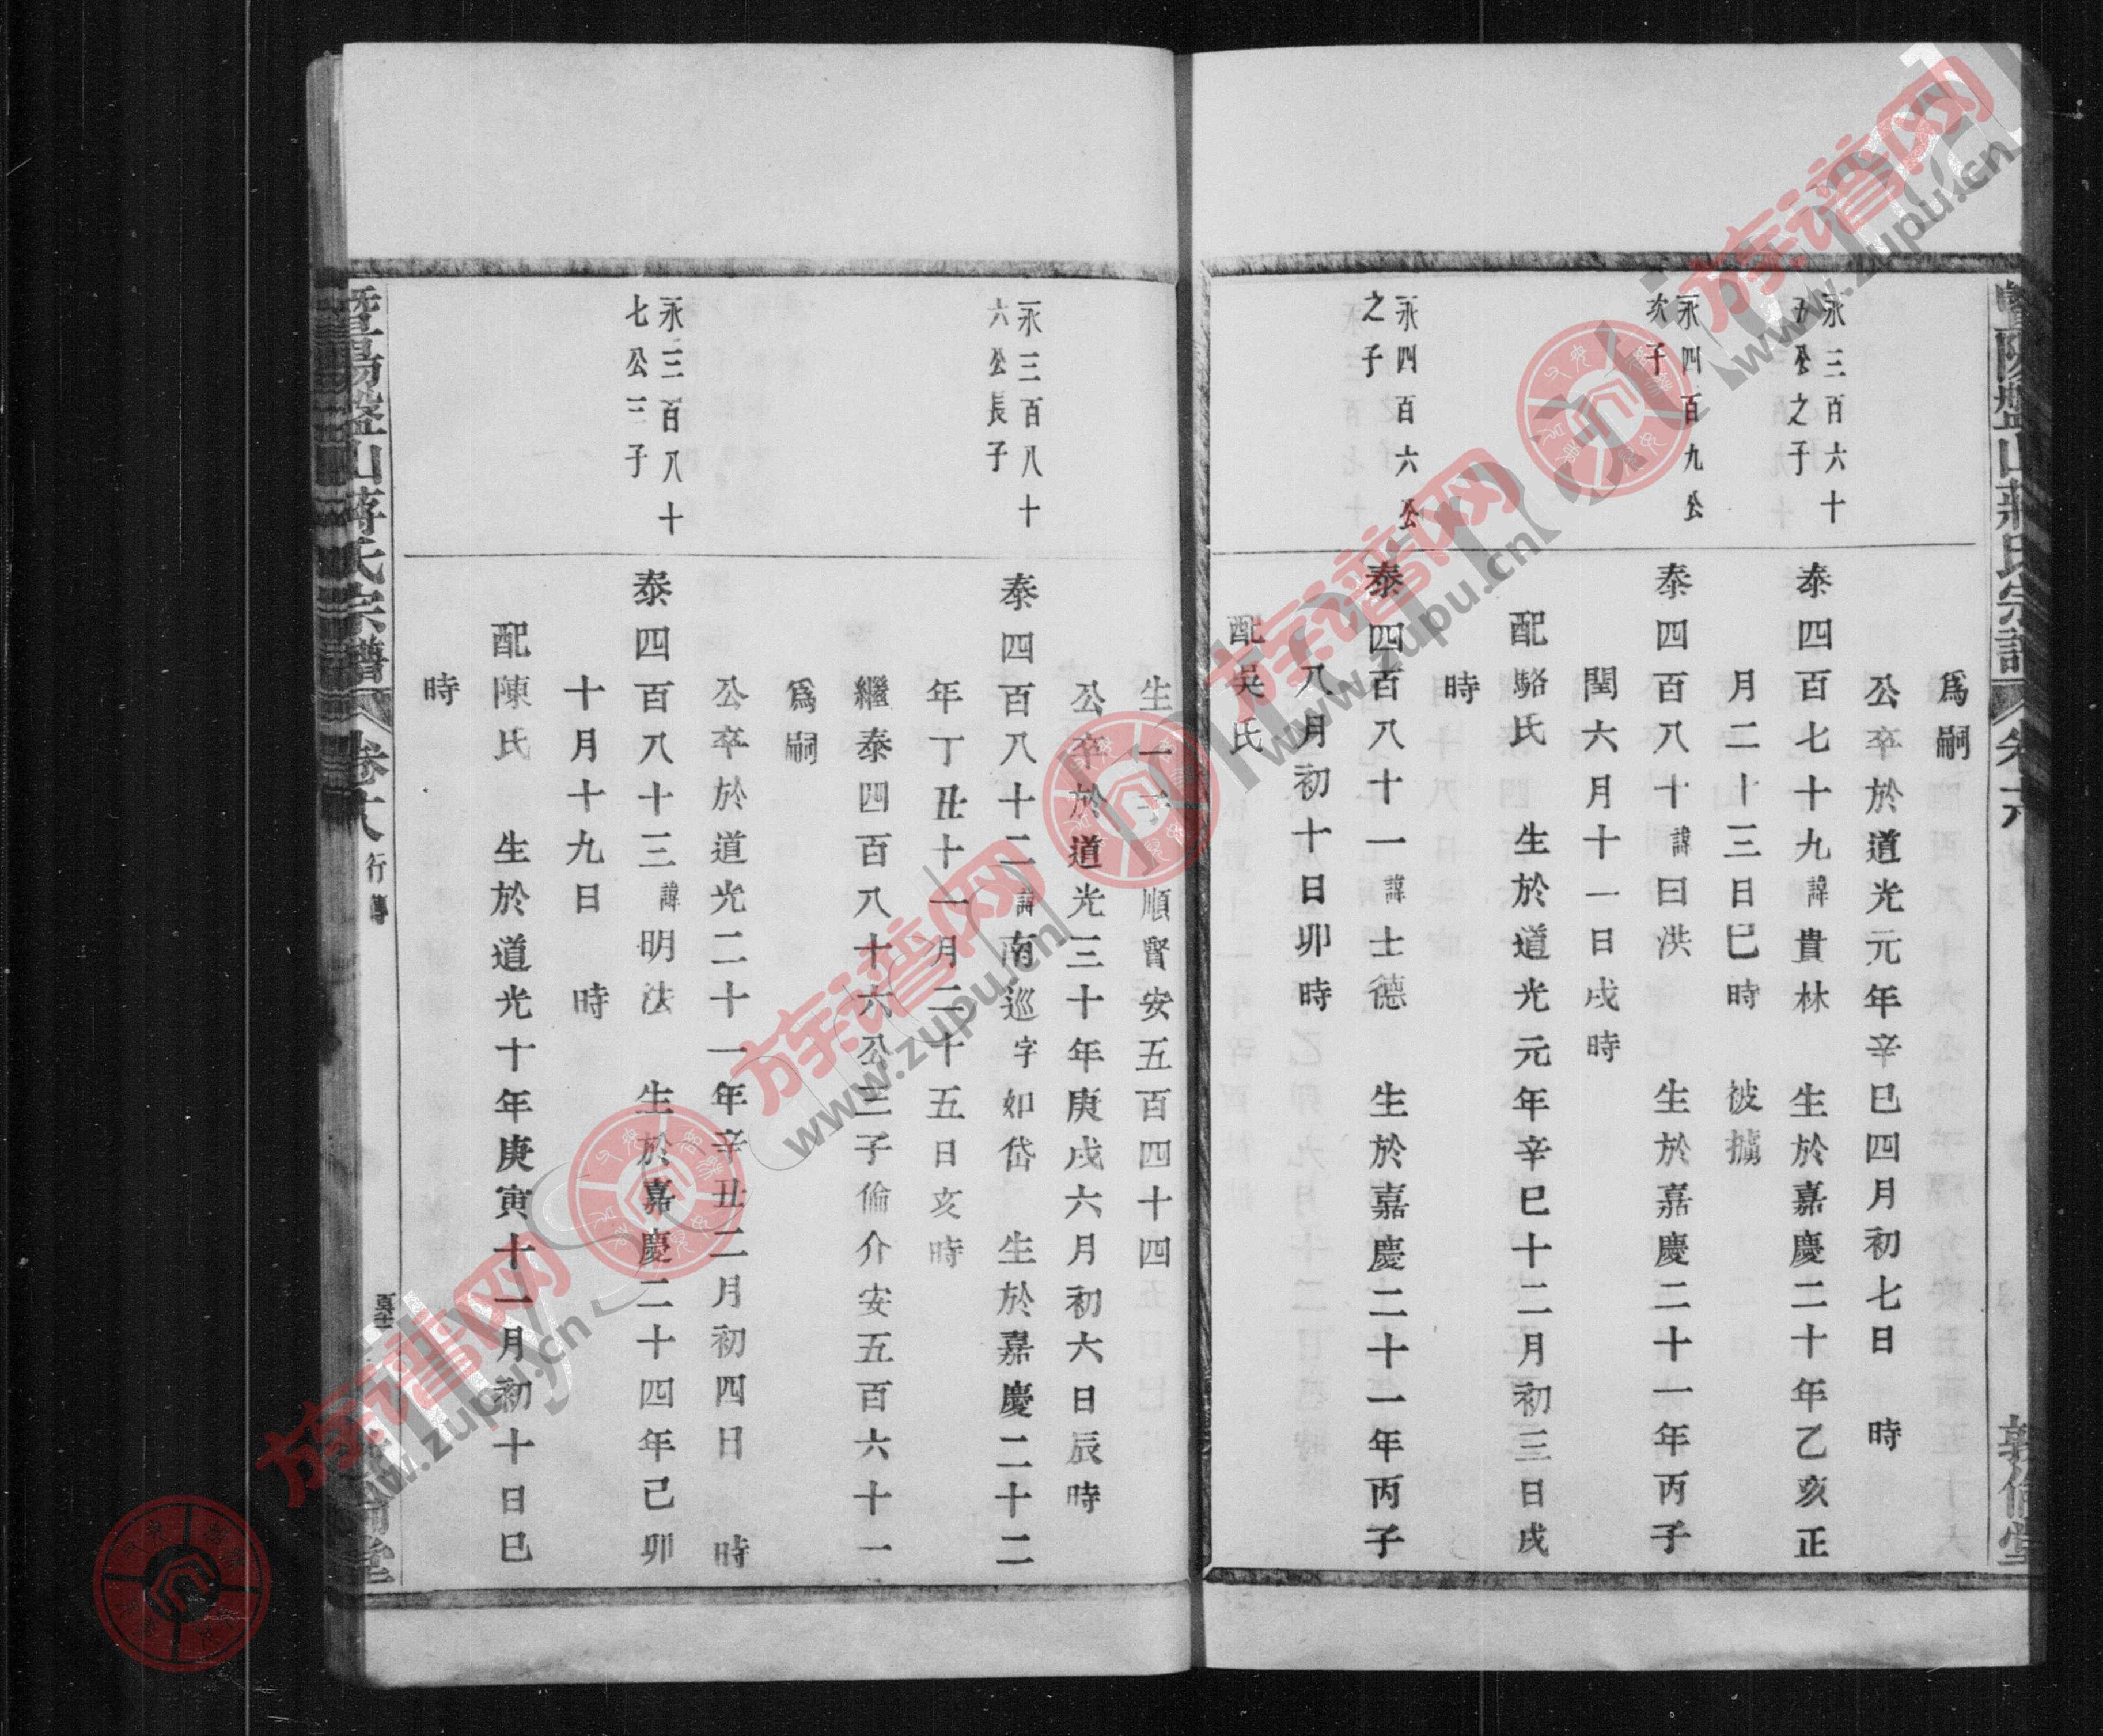 暨陽盤山蔣氏宗譜
敦倫堂
爲嗣
公卒於道光元年辛巳四月初七日 時
永三百六十
五公之子
泰四百七十九諱貴林 生於嘉慶二十年乙亥正
月二十三日巳時 被擄
永四百九公
次子
泰四百八十諱曰洪 生於嘉慶二十一年丙子
閏六月十一日戌時
配駱氏 生於道光元年辛巳十二月初三日戌
時
永四百六公
之子
泰四百八十一諱士德 生於嘉慶二十一年丙子
八月初十日卯時
配吳氏
生一子順賢安五百四十四
公卒於道光三十年庚戌六月初六日辰時
永三百八十
六公長子
泰四百八十二諱南巡字如岱 生於嘉慶二十二
年丁丑十一月二十五日亥時
繼泰四百八十六公三子倫介安五百六十一
爲嗣
公卒於道光二十一年辛丑二月初四日 時
永三百八十
七公三子
泰四百八十三諱明法 生於嘉慶二十四年己卯
十月十九日 時
配陳氏 生於道光十年庚寅十一月初十日巳
時
暨陽盤山蔣氏宗譜
行傳
族谱网
www.zupu.cn
族谱网
www.zupu.cn
族谱网
www.zupu.cn
族谱网
www.zupu.cn